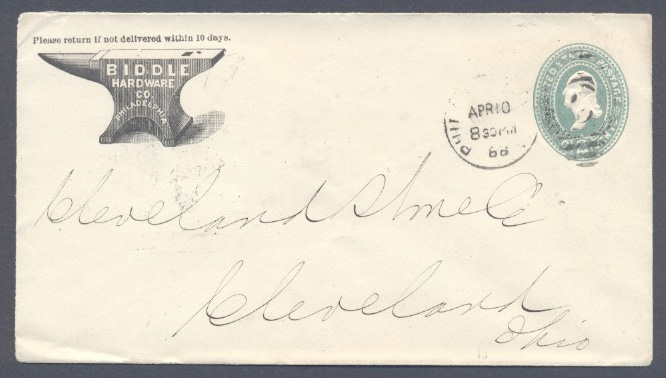 Please return if not delivered within 10 days.
BIDDLE
HARDWARE
CO.
PHILADELPHIA
PHIL
APR 10
8 30 PM
88
UNITED STATES POSTAGE
Cleveland
Cleveland
Ohio